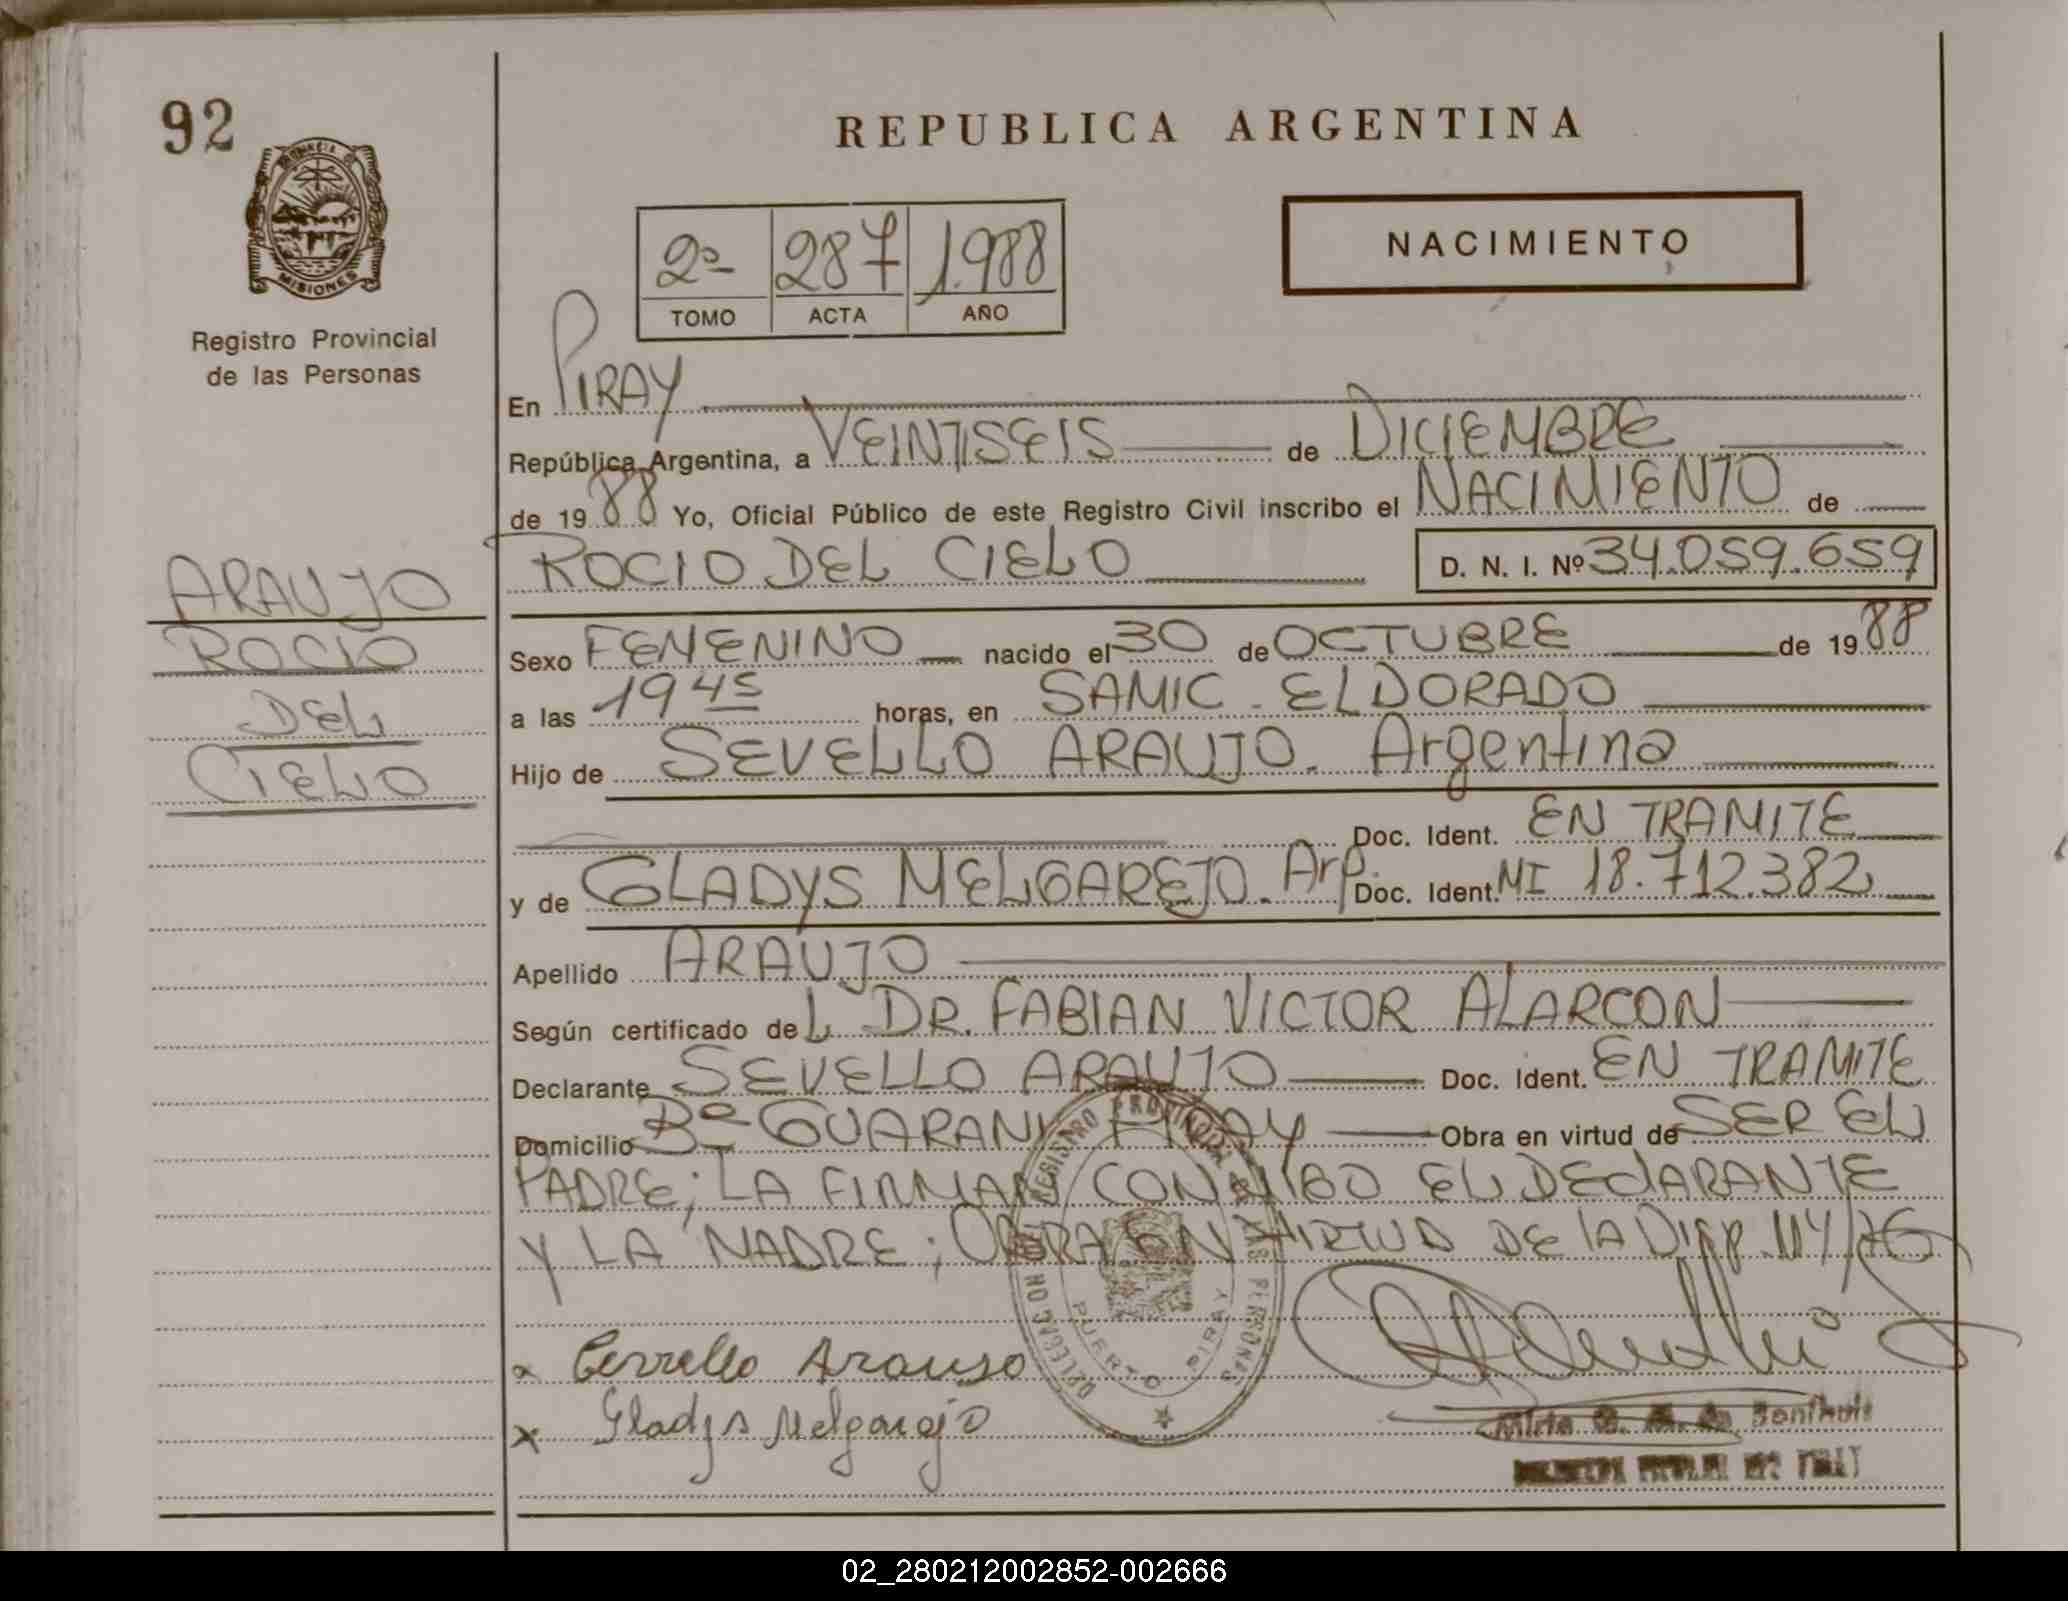 92
REPUBLICA ARGENTINA
PROVINCIA D
MISIONES
Registro Provincial
de las Personas
2º 287 1.988
TOMO ACTA AÑO
NACIMIENTO
En PIRAY
República Argentina, a VEINTISEIS de DICIEMBRE
de 1988 Yo, Oficial Público de este Registro Civil inscribo el NACIMIENTO de
ROCIO DEL CIELO D. N. I. Nº 34.059.659
ARAUJO
ROCIO
DEL
CIELO
Sexo FEMENINO nacido el 30 de OCTUBRE de 1988
a las 19 45 horas, en SAMIC - ELDORADO
Hijo de SEVELLO ARAUJO. Argentina
Doc. Ident. EN TRAMITE
y de GLADYS MELGAREJO. Arg. Doc. Ident. MI 18.712.382
Apellido ARAUJO
Según certificado del DR. FABIAN VICTOR ALARCON
Declarante SEVELLO ARAUJO Doc. Ident. EN TRAMITE
Domicilio Bº GUARANI PIRAY Obra en virtud de SER EL
PADRE; LA FIRMAN CONMIGO EL DECLARANTE
Y LA MADRE; OBRA EN VIRTUD DE LA DISP. 114/76
REGISTRO PROVINCIAL DE LAS PERSONAS
DELEGACION
PUERTO PIRAY
x Cerrello Arauso
x Gladys Melgarejo
Mirta
02_280212002852-002666